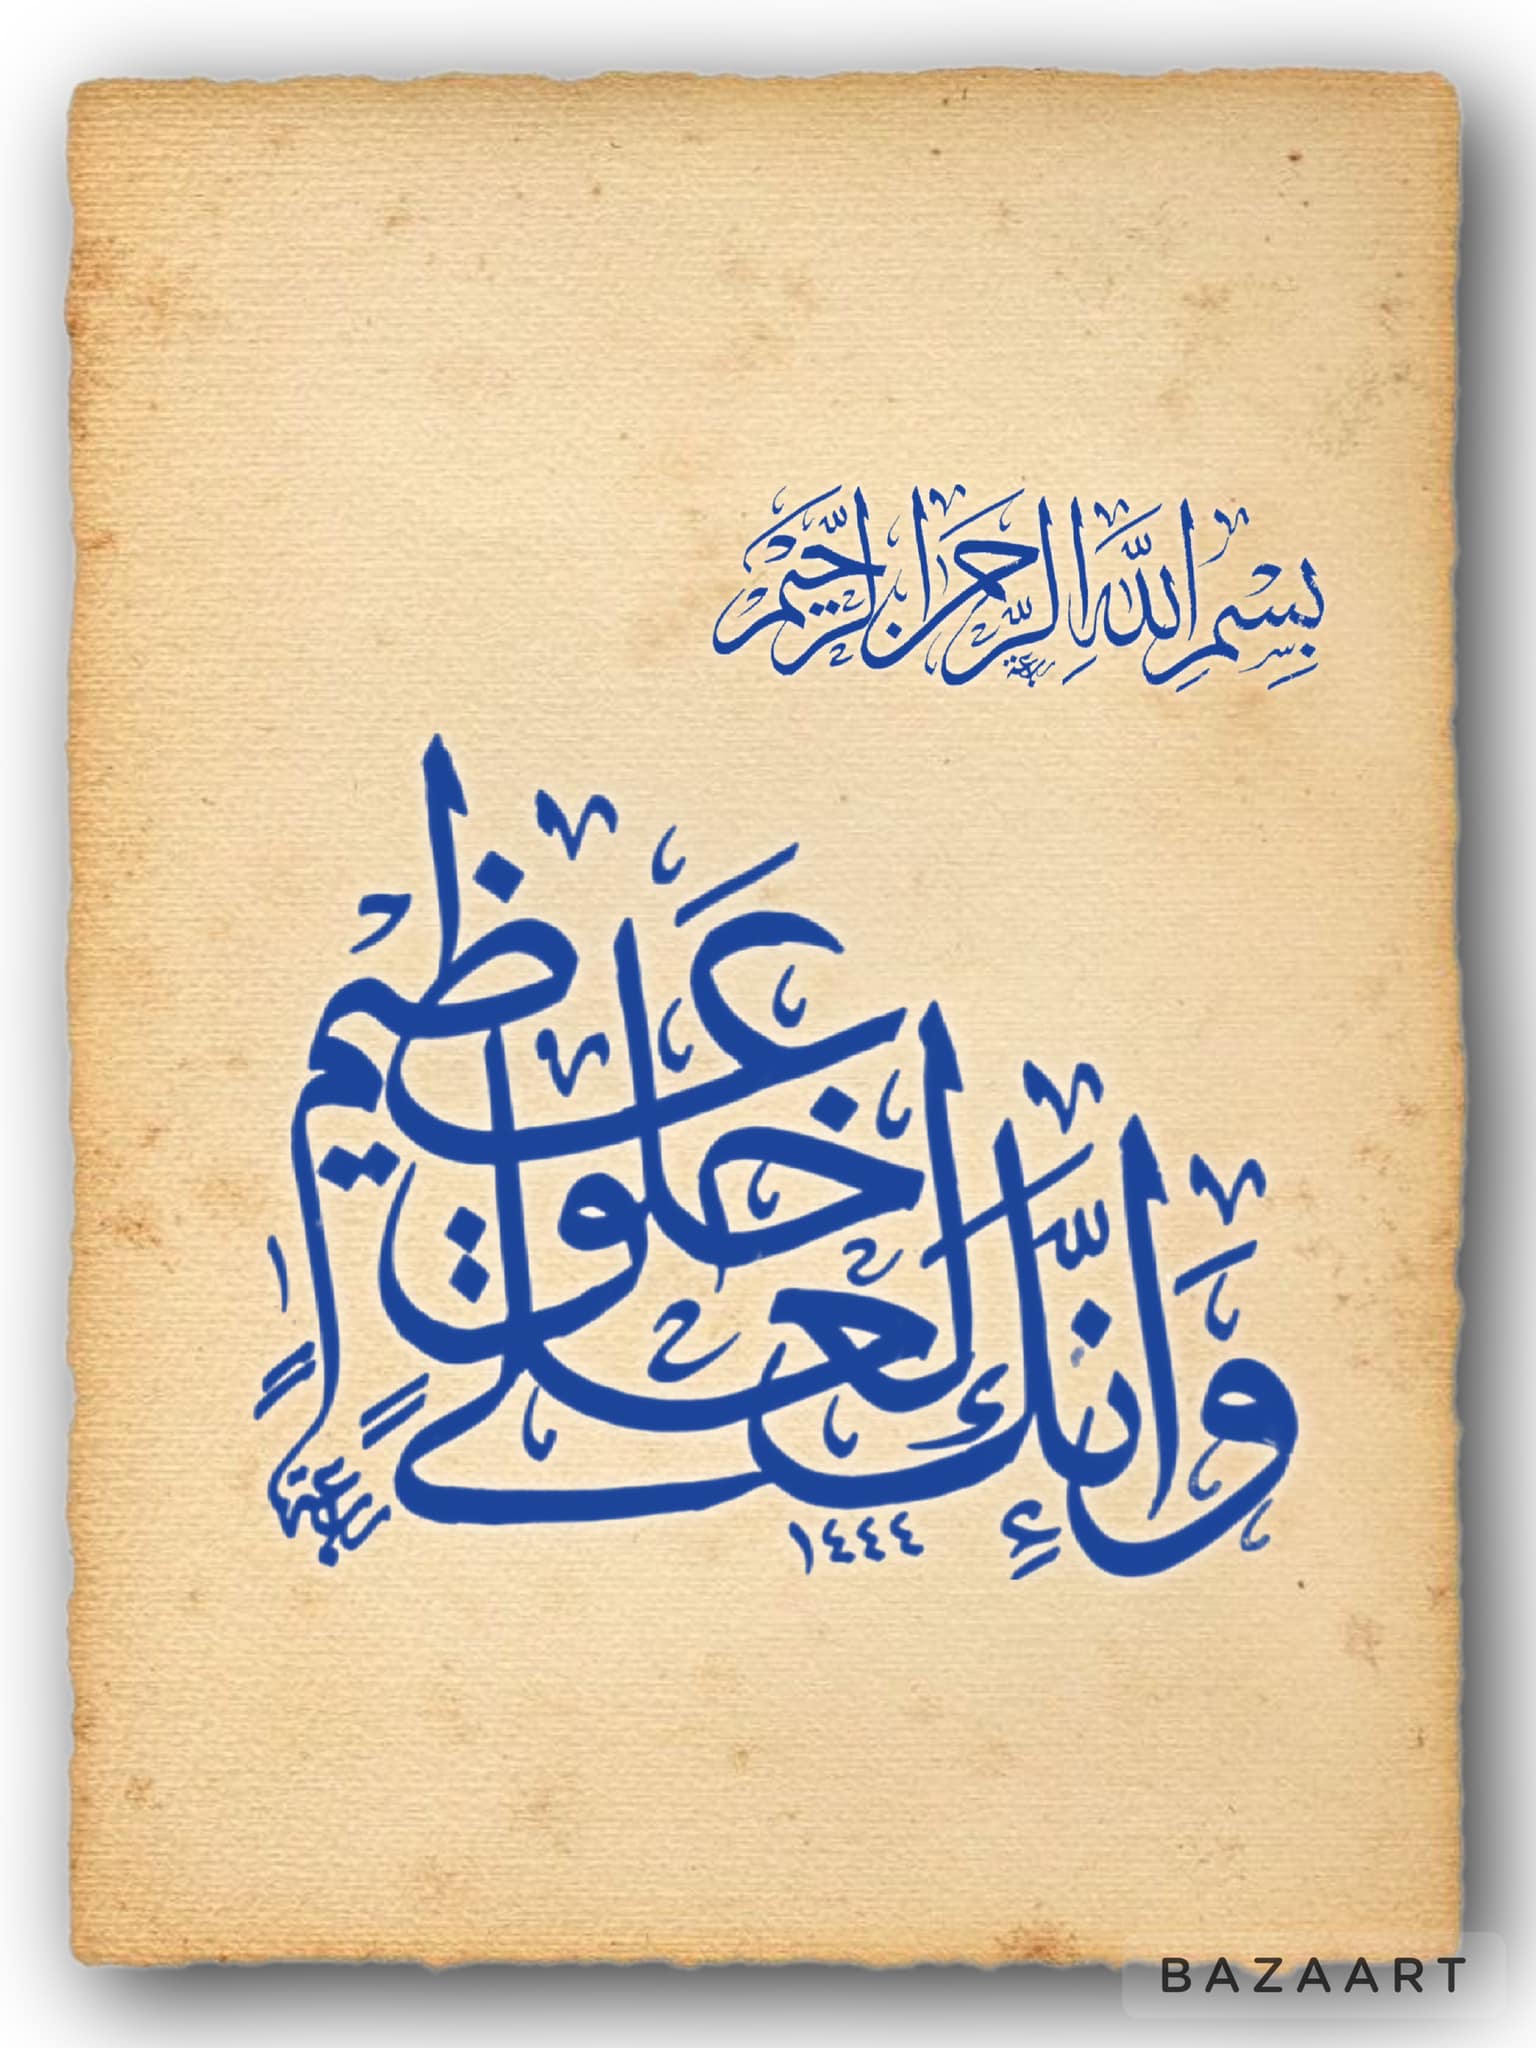 بِسْمِ اللَّهِ الرَّحْمَٰنِ الرَّحِيمِ
وَإِنَّكَ لَعَلَىٰ خُلُقٍ عَظِيمٍ
١٤٤٤
BAZAART